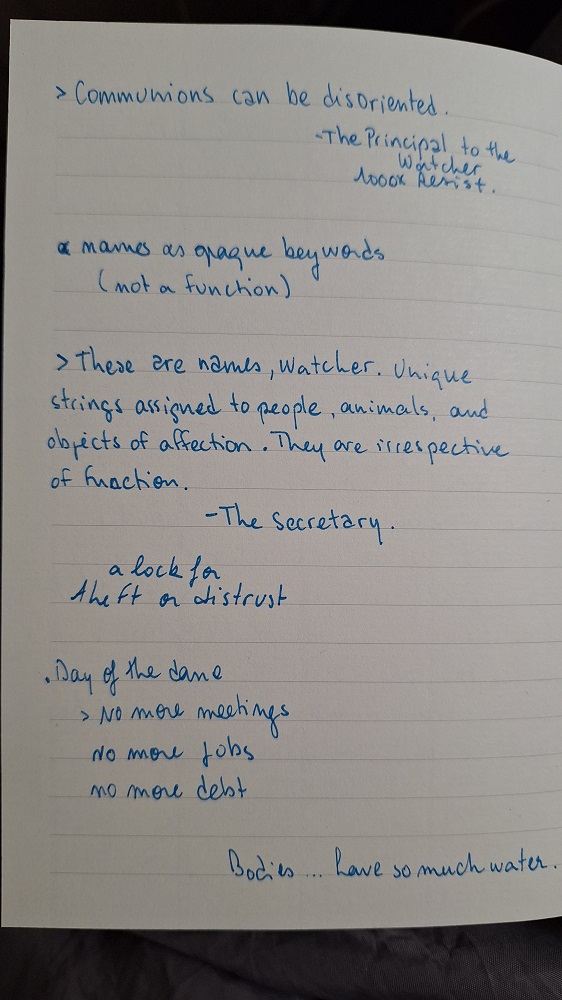 > Communions can be disoriented.
-The Principal to the
Watcher
1000x Resist.
names as opaque keywords
(not a function)
> These are names, Watcher. Unique
strings assigned to people, animals, and
objects of affection. They are irrespective
of function.
-The Secretary.
a lock for
theft or distrust
. Day of the
> No more meetings
No more Jobs
no more debt
Bodies ... have so much water.